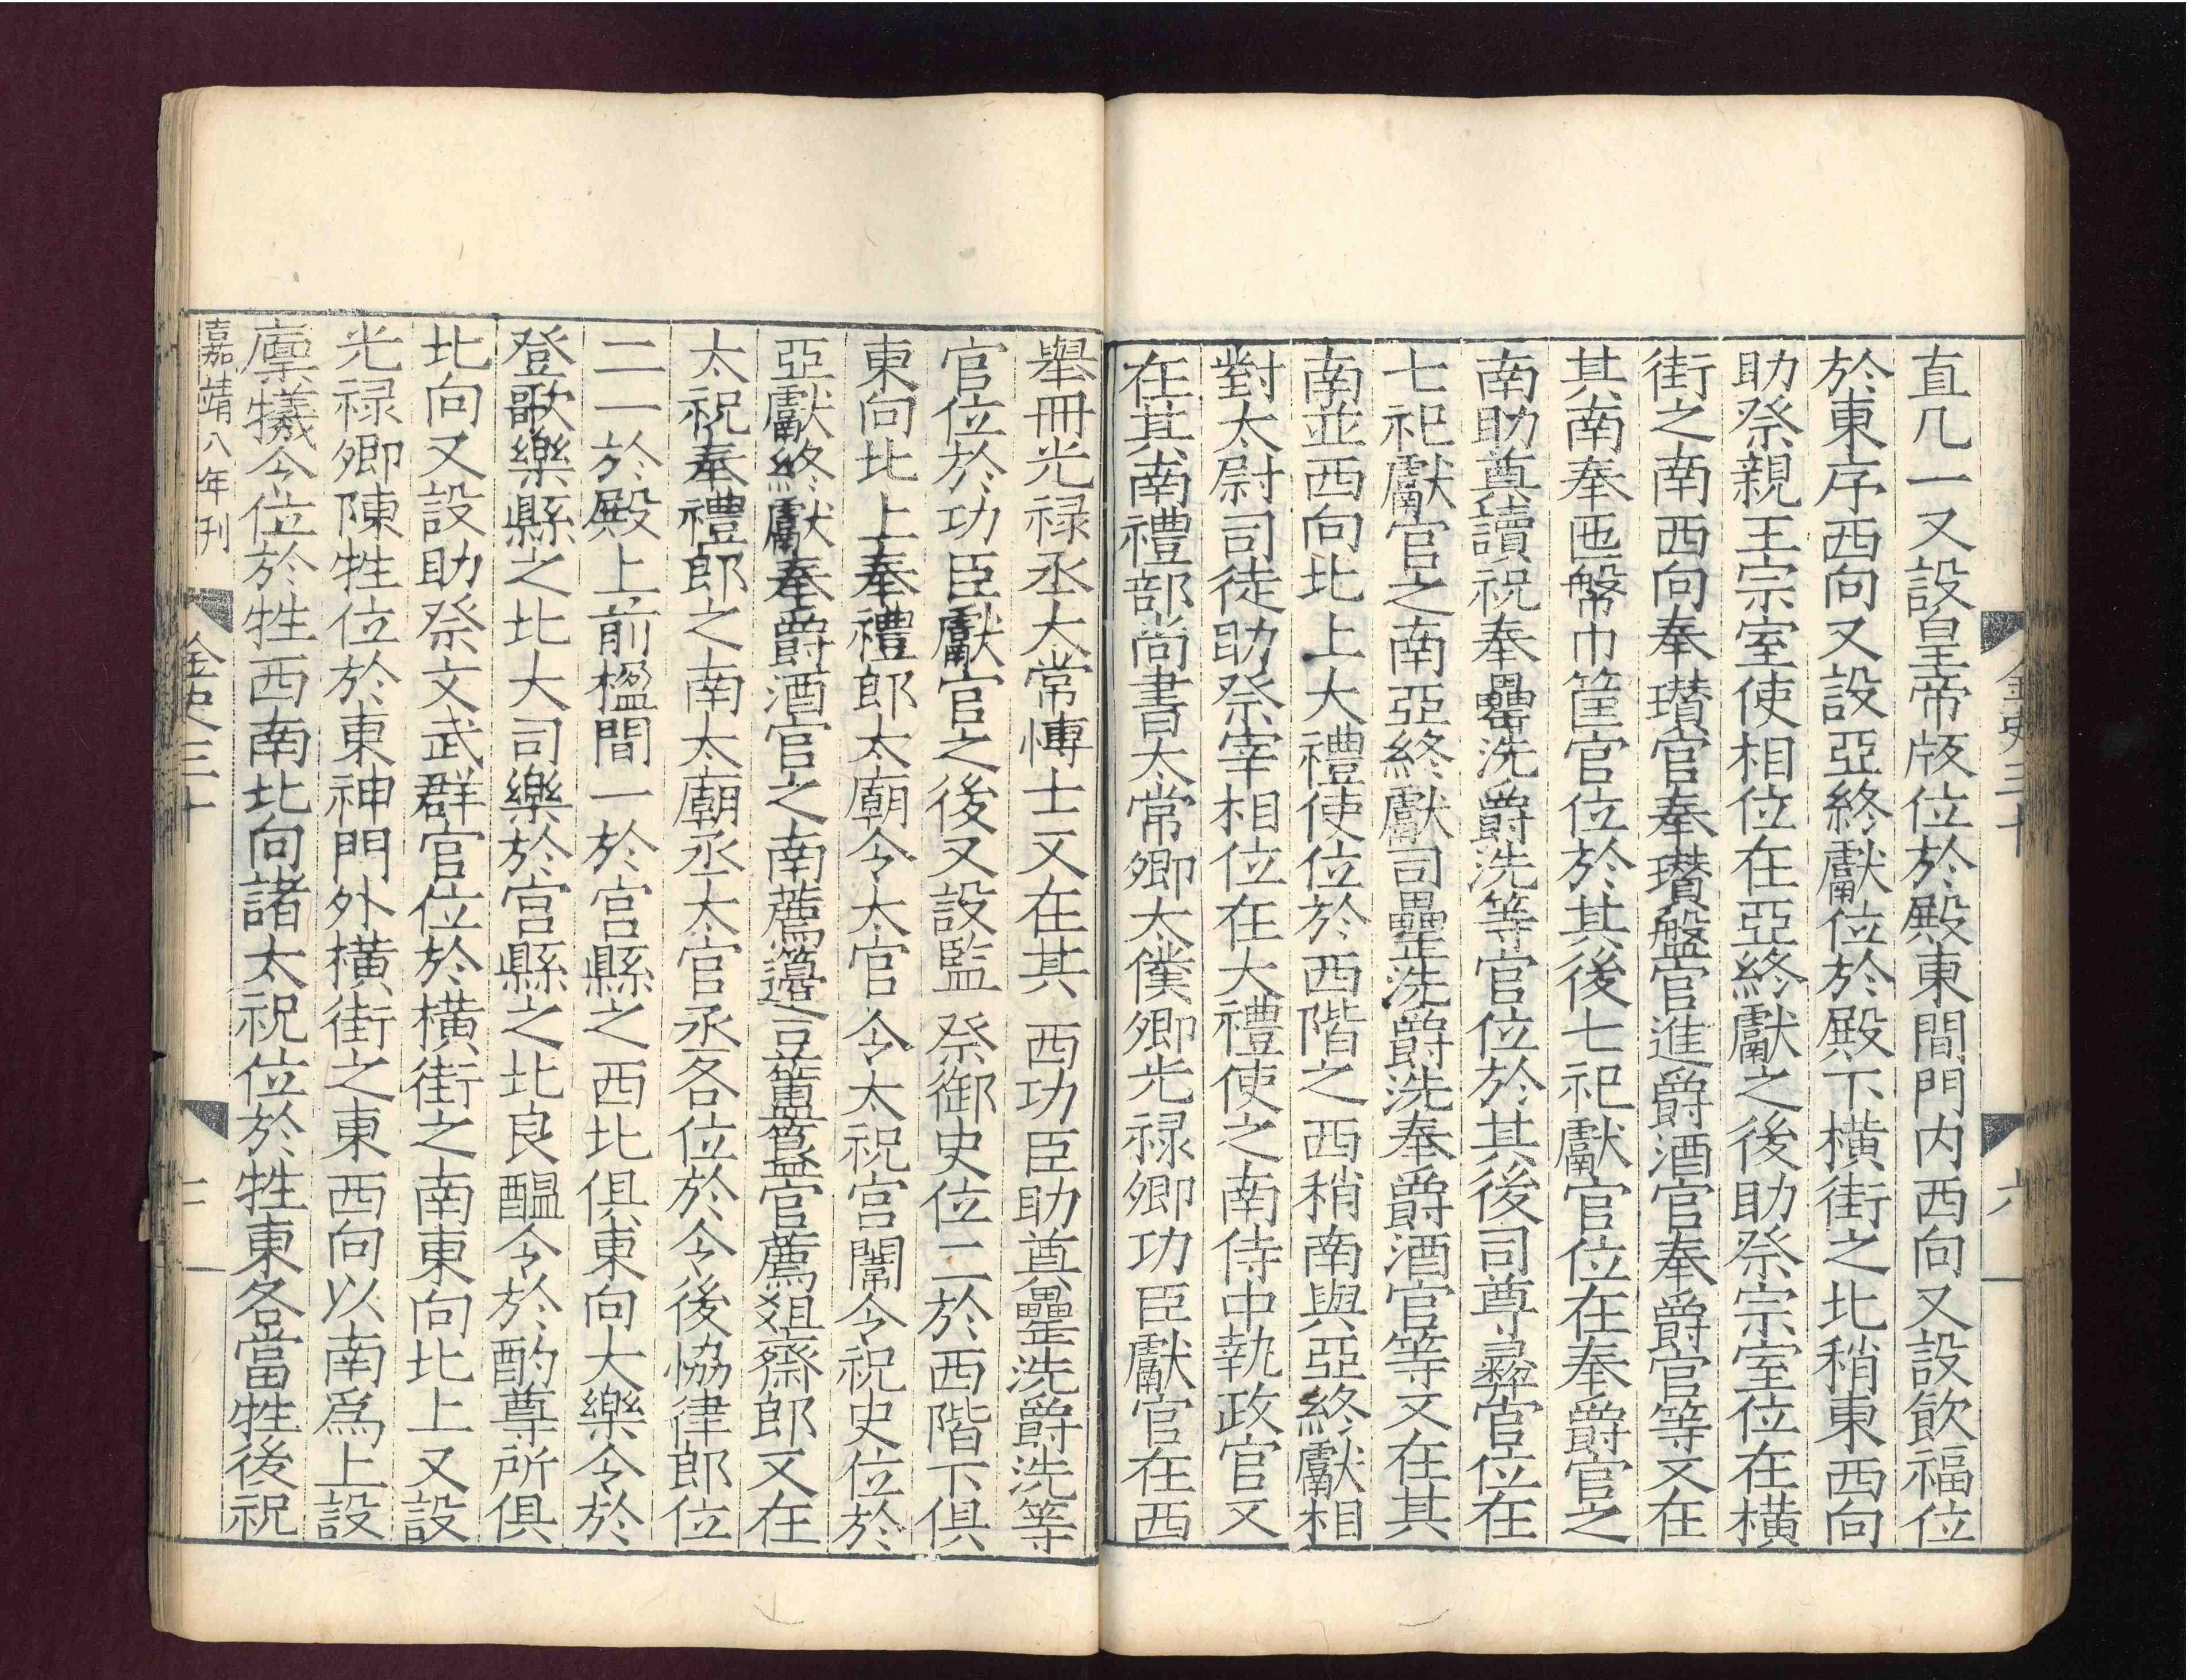 金史三十
六
直几一又設皇帝版位於殿東間門内西向又設飲福位
於東序西向又設亞終獻位於殿下橫街之北稍東西向
助祭親王宗室使相位在亞終獻之後助祭宗室位在橫
街之南西向奉瓚官奉瓚盤官進爵酒官奉爵官等又在
其南奉匜盤巾篚官位於其後七祀獻官位在奉爵官之
南助奠讀祝奉罍洗爵洗等官位於其後司尊彝官位在
七祀獻官之南亞終獻司罍洗爵洗奉爵酒官等又在其
南並西向北上大禮使位於西階之西稍南與亞終獻相
對太尉司徒助祭宰相位在大禮使之南侍中執政官又
在其南禮部尚書太常卿太僕卿光禄卿功臣獻官在西
舉冊光禄丞太常博士又在其西功臣助奠罍洗爵洗等
官位於功臣獻官之後又設監祭御史位二於西階下俱
東向北上奉禮郎太廟令太官令太祝宫闈令祝史位於
亞獻終獻奉爵酒官之南薦籩豆簠簋官薦俎齋郎又在
太祝奉禮郎之南太廟丞太官丞各位於令後協律郎位
二一於殿上前楹間一於宫縣之西北俱東向大樂令於
登歌樂縣之北大司樂於宫縣之北良醞令於酌尊所俱
北向又設助祭文武群官位於橫街之南東向北上又設
光禄卿陳牲位於東神門外橫街之東西向以南爲上設
廩犧令位於牲西南北向諸太祝位於牲東各當牲後祝
嘉靖八年刊
金史三十